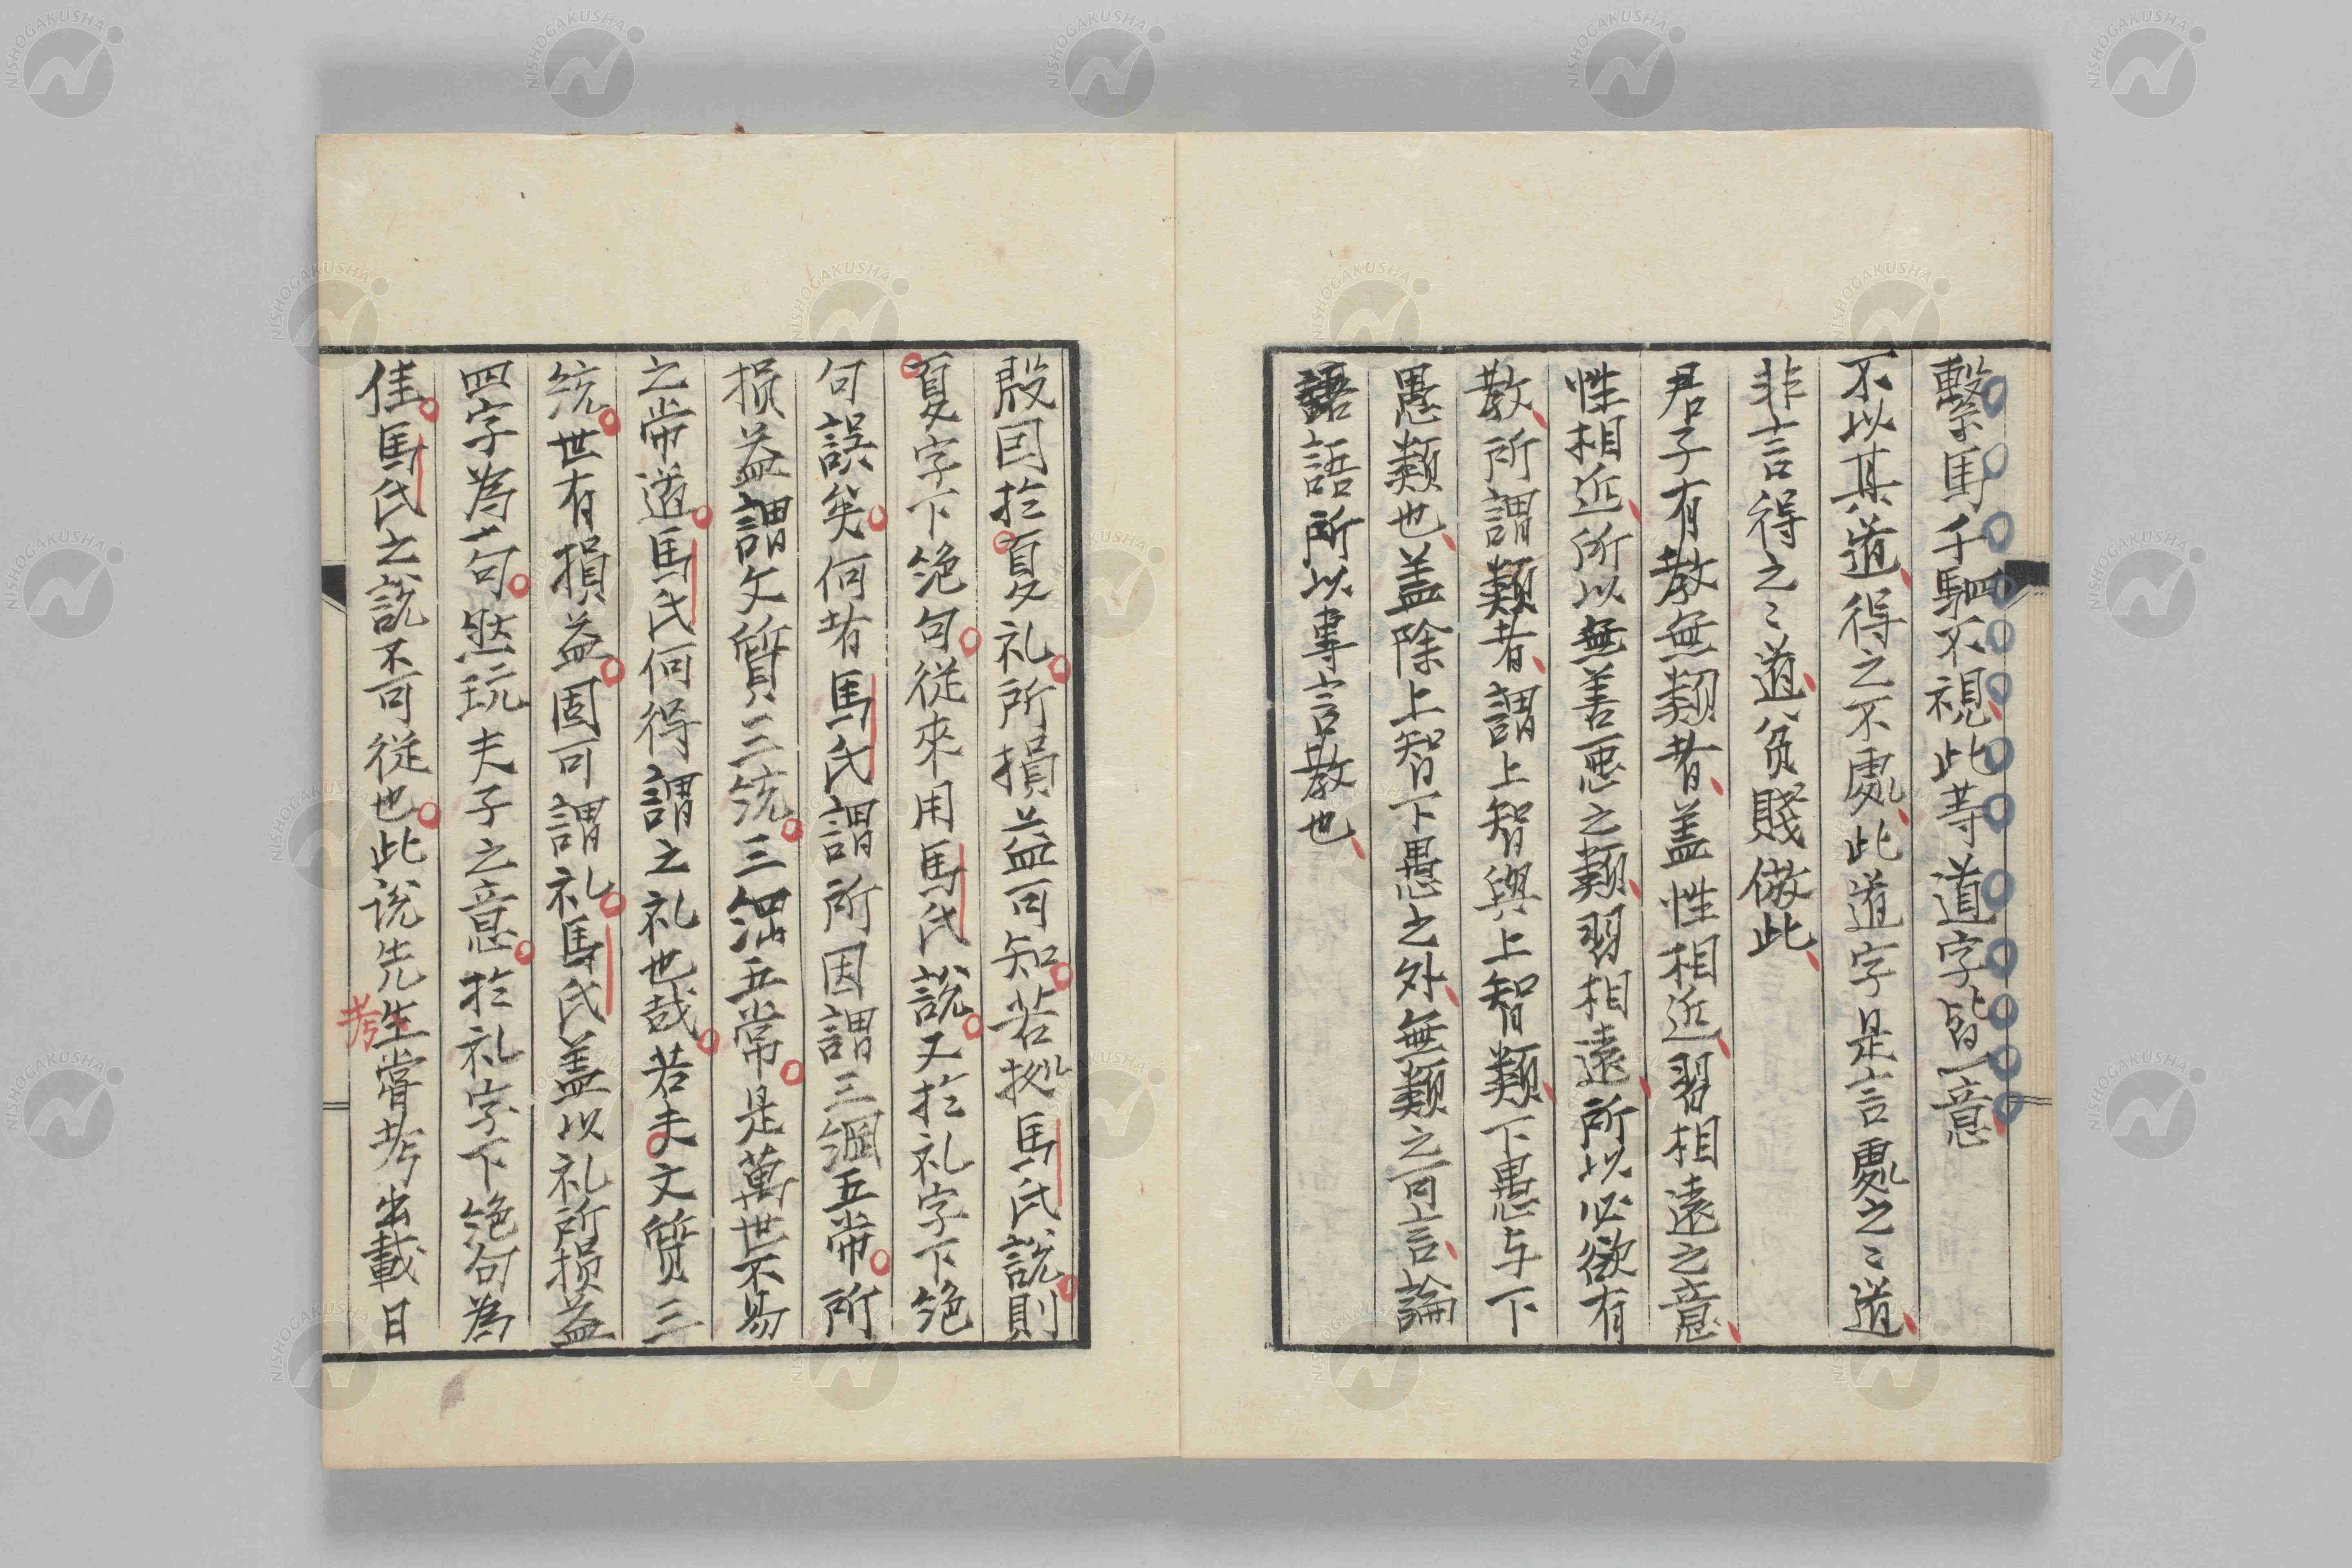 繋馬千駟不視此等道字皆一意
不以其道得之不處此道字是言處之〻道
非言得之〻道貧賤倣此
君子有教無類者盖性相近習相遠之意
性相近所以無善悪之類習相遠所以必欲有
教所謂類者謂上智與上智類下愚与下
愚類也盖除上智下愚之外無類之可言論
語語所以專言教也
殷因於夏礼所損益可知若拠馬氏説則
夏字下絶句從來用馬氏説又於礼字下絶
句誤矣何者馬氏謂所因謂三綱五常所
損益謂文質三統三綱五常是萬世不易
之常道馬氏何得謂之礼也哉若夫文質三
統世有損益固可謂礼馬氏盖以礼所損益
四字為一句然玩夫子之意於礼字下絶句為
佳馬氏之説不可從也此説先生嘗考出載日
考
NISHOGAKUSHA